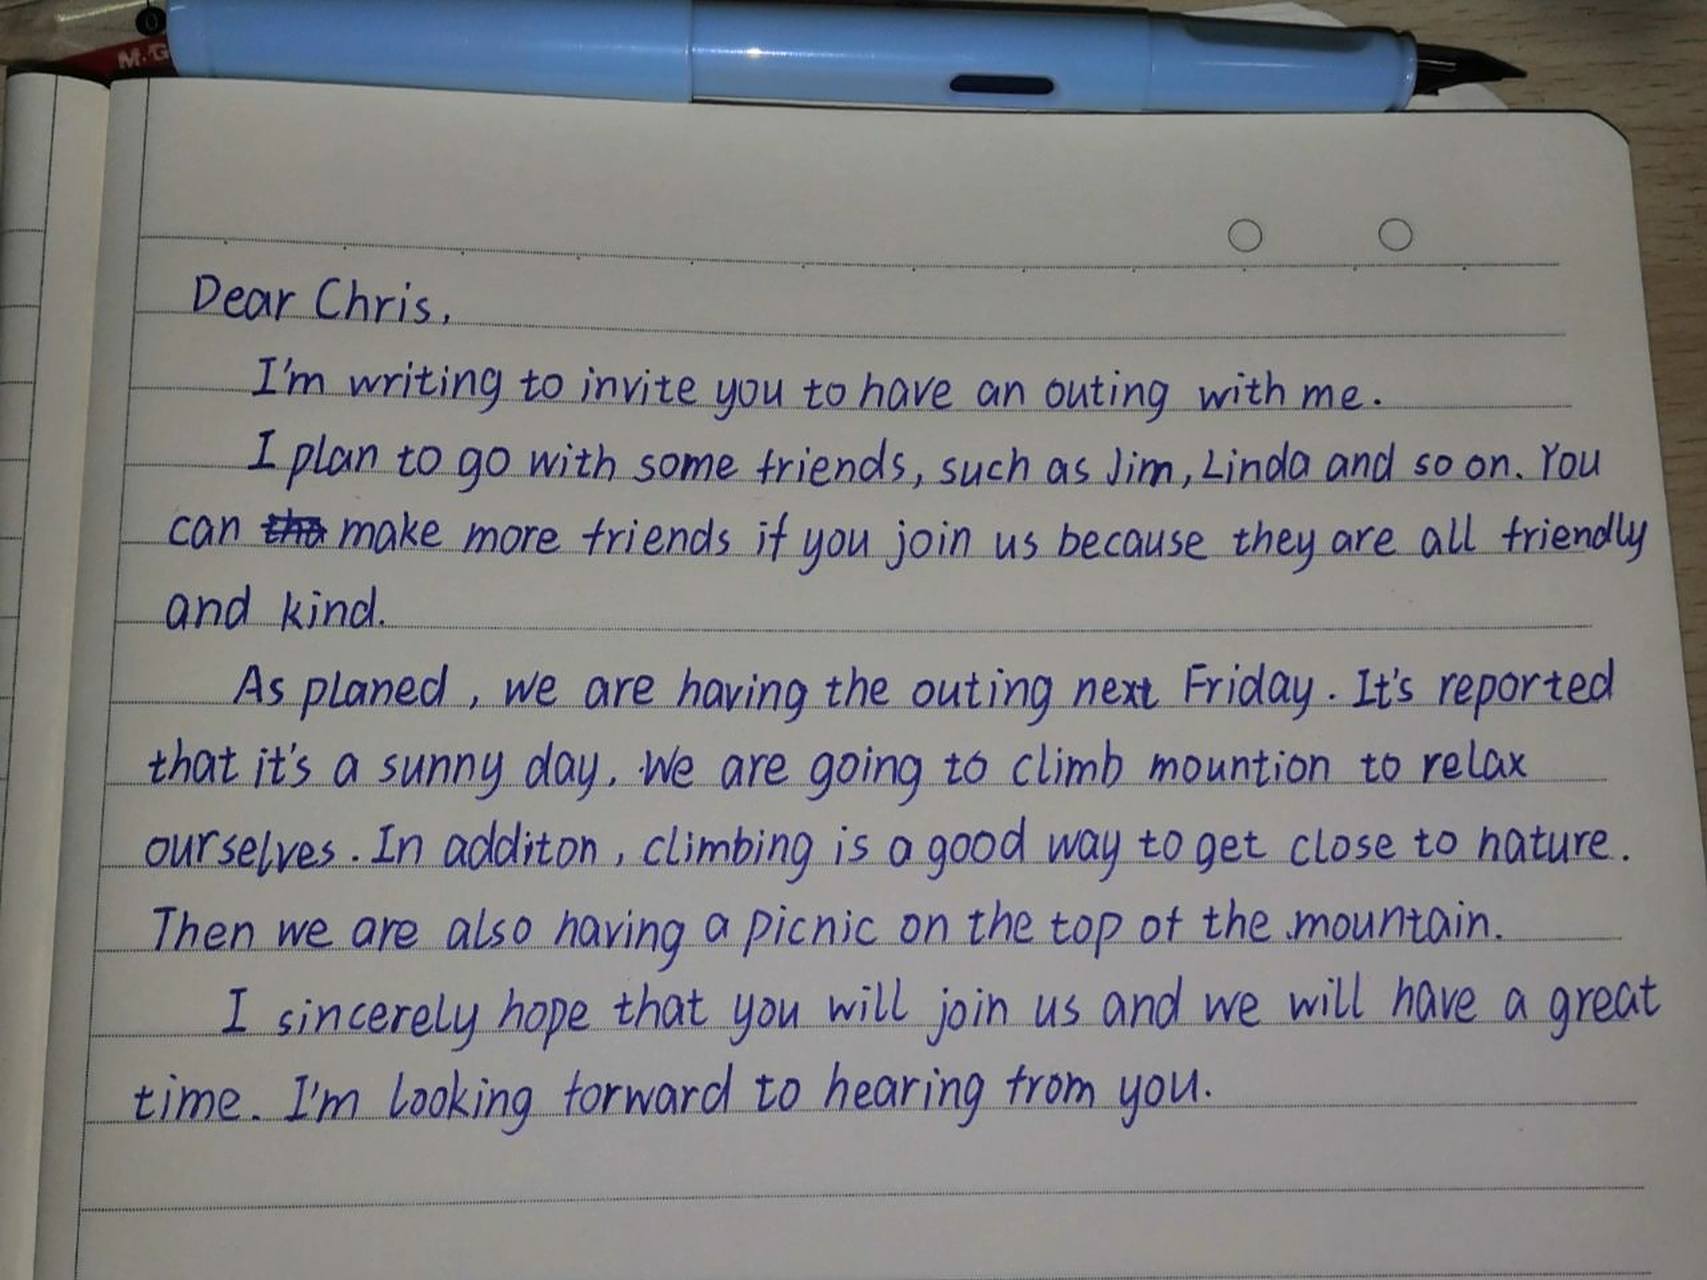 M&G
Dear Chris,
I'm writing to invite you to have an outing with me.
I plan to go with some friends, such as Jim, Linda and so on. You
can tha make more friends if you join us because they are all friendly
and kind.
As planed, we are having the outing next Friday. It's reported
that it's a sunny day. We are going to climb mountion to relax
ourselves. In additon, climbing is a good way to get close to nature.
Then we are also having a picnic on the top of the mountain.
I sincerely hope that you will join us and we will have a great
time. I'm looking forward to hearing from you.